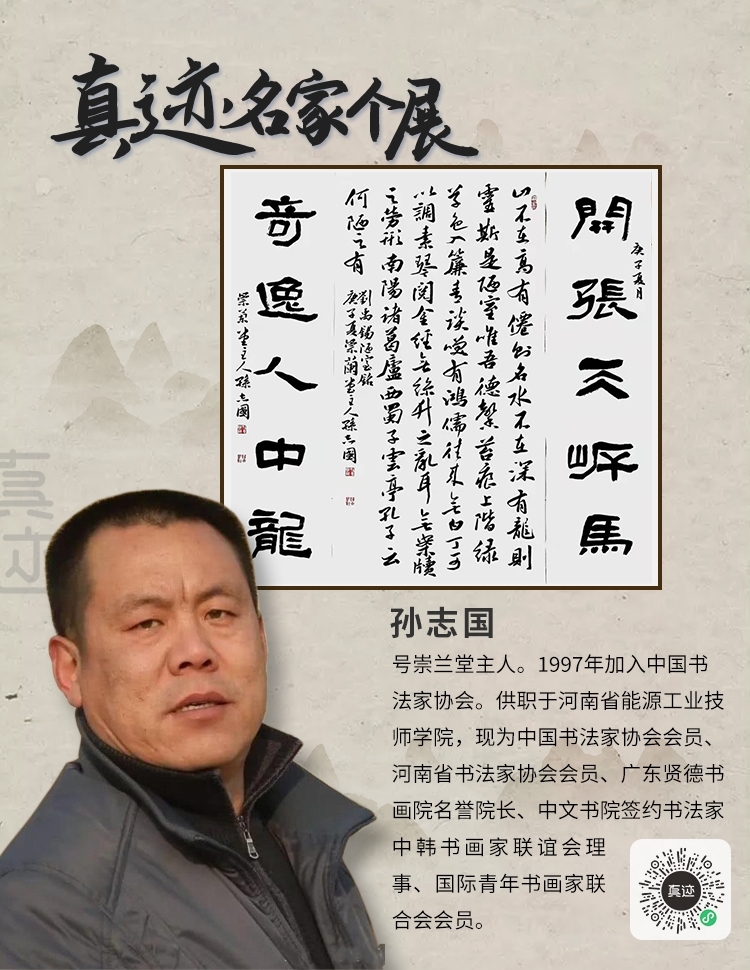 真迹·名家个展
開張天岍馬
庚子夏月
山不在高有僊則名水不在深有龍則
靈斯是陋室唯吾德馨苔痕上階緑
草色入簾青談笑有鴻儒往来無白丁可
以調素琴閲金經無絲竹之亂耳無案牘
之勞形南陽諸葛廬西蜀子雲亭孔子云
何陋之有
劉禹錫陋室銘
庚子夏崇蘭堂主人孫志國
奇逸人中龍
崇蘭堂主人孫志國
真迹
孙志国
号崇兰堂主人。1997年加入中国书
法家协会。供职于河南省能源工业技
师学院，现为中国书法家协会会员、
河南省书法家协会会员、广东贤德书
画院名誉院长、中文书院签约书法家
中韩书画家联谊会理
事、国际青年书画家联
合会会员。
真迹